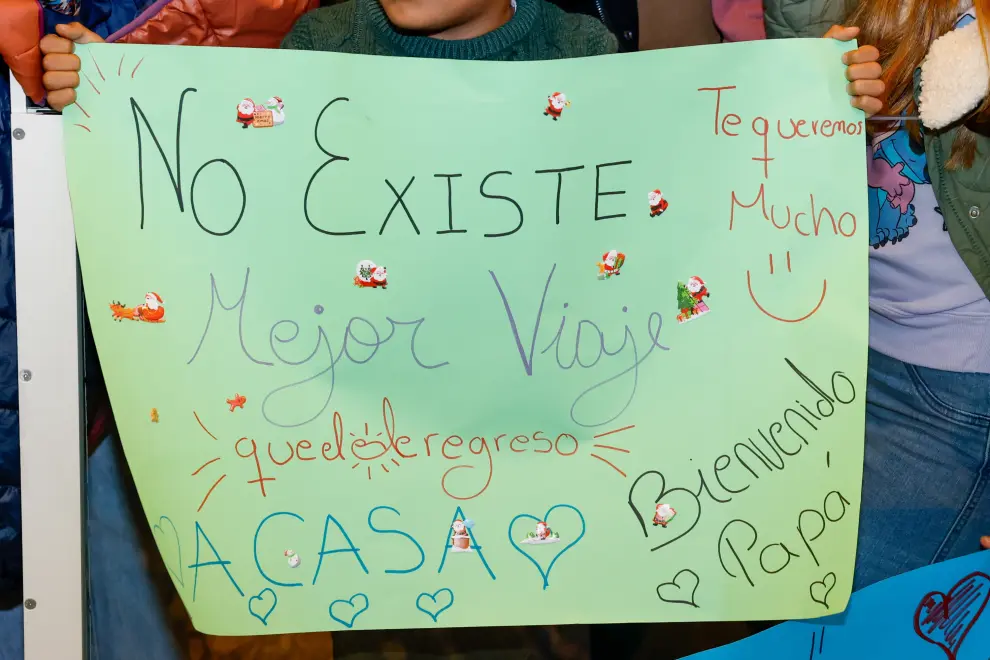 No Existe
Mejor Viaje
que el de regreso
A CASA
Te queremos
Mucho
Bienvenido
Papá